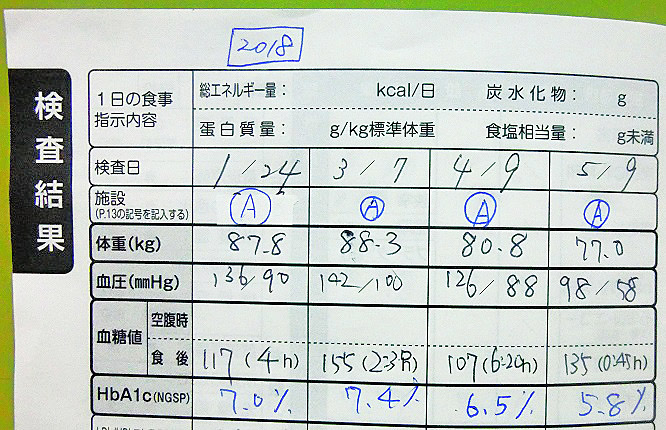 2018
検査結果
1日の食事指示内容 総エネルギー量: kcal/日 炭水化物: g
蛋白質量: g/kg標準体重 食塩相当量: g未満
検査日 1/24 3/7 4/9 5/9
施設(P.13の記号を記入する) A A A A
体重(kg) 87.8 88.3 80.8 77.0
血圧(mmHg) 136/90 142/100 126/88 98/58
血糖値 空腹時
食後 117(4h) 155(2:3h) 107(6:20h) 135(0:45h)
HbA1c(NGSP) 7.0% 7.4% 6.5% 5.8%